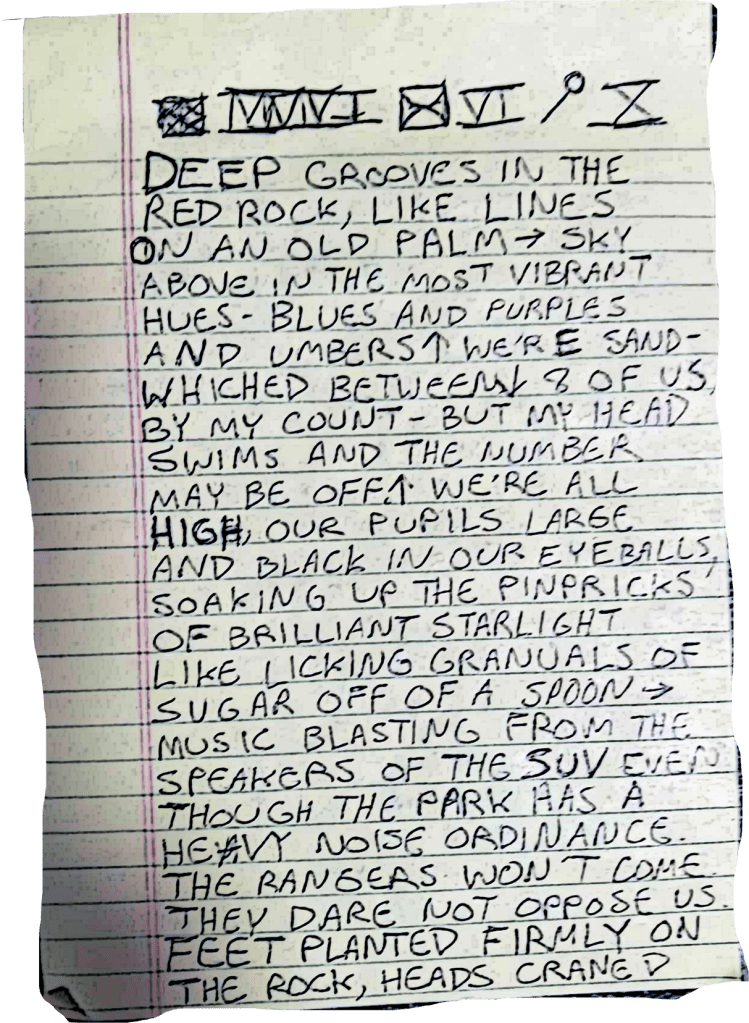 DEEP GROOVES IN THE
RED ROCK, LIKE LINES
ON AN OLD PALM → SKY
ABOVE IN THE MOST VIBRANT
HUES - BLUES AND PURPLES
AND UMBERS ↑ WE'RE SAND-
WHICHED BETWEEN ↓ 8 OF US,
BY MY COUNT - BUT MY HEAD
SWIMS AND THE NUMBER
MAY BE OFF. ↑ WE'RE ALL
HIGH, OUR PUPILS LARGE
AND BLACK IN OUR EYEBALLS,
SOAKING UP THE PINPRICKS
OF BRILLIANT STARLIGHT
LIKE LICKING GRANUALS OF
SUGAR OFF OF A SPOON →
MUSIC BLASTING FROM THE
SPEAKERS OF THE SUV EVEN
THOUGH THE PARK HAS A
HEAVY NOISE ORDINANCE.
THE RANGERS WON'T COME.
THEY DARE NOT OPPOSE US.
FEET PLANTED FIRMLY ON
THE ROCK, HEADS CRANED